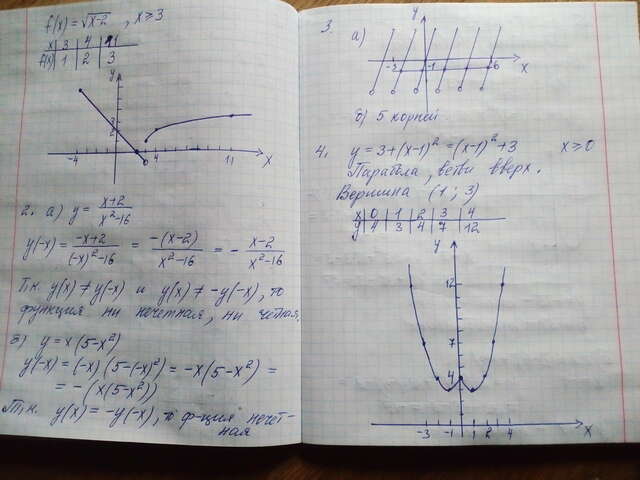 f(x) = √x-2 , x ≥ 3
x | 3 | 4 | 11
f(x) | 1 | 2 | 3
y
3
2
-4 4 11 x
2. а) y = x+2 / x²-16
y(-x) = -x+2 / (-x)²-16 = -(x-2) / x²-16 = - x-2 / x²-16
Т.к. y(x) ≠ y(-x) и y(x) ≠ -y(-x), то
функция ни нечетная, ни четная.
y = x(5-x²)
y(-x) = (-x)(5-(-x)²) = -x(5-x²) =
= -(x(5-x²))
Т.к. y(x) = -y(-x), то ф-ция нечет-
ная
3.
а)
y
-3 -1 6 x
б) 5 корней
4. y = 3+(x-1)² = (x-1)²+3 x ≥ 0
Парабола, ветви вверх.
Вершина (1; 3)
x | 0 | 1 | 2 | 3 | 4
y | 4 | 3 | 4 | 7 | 12
y
12
7
4
-3 -1 1 2 4 x